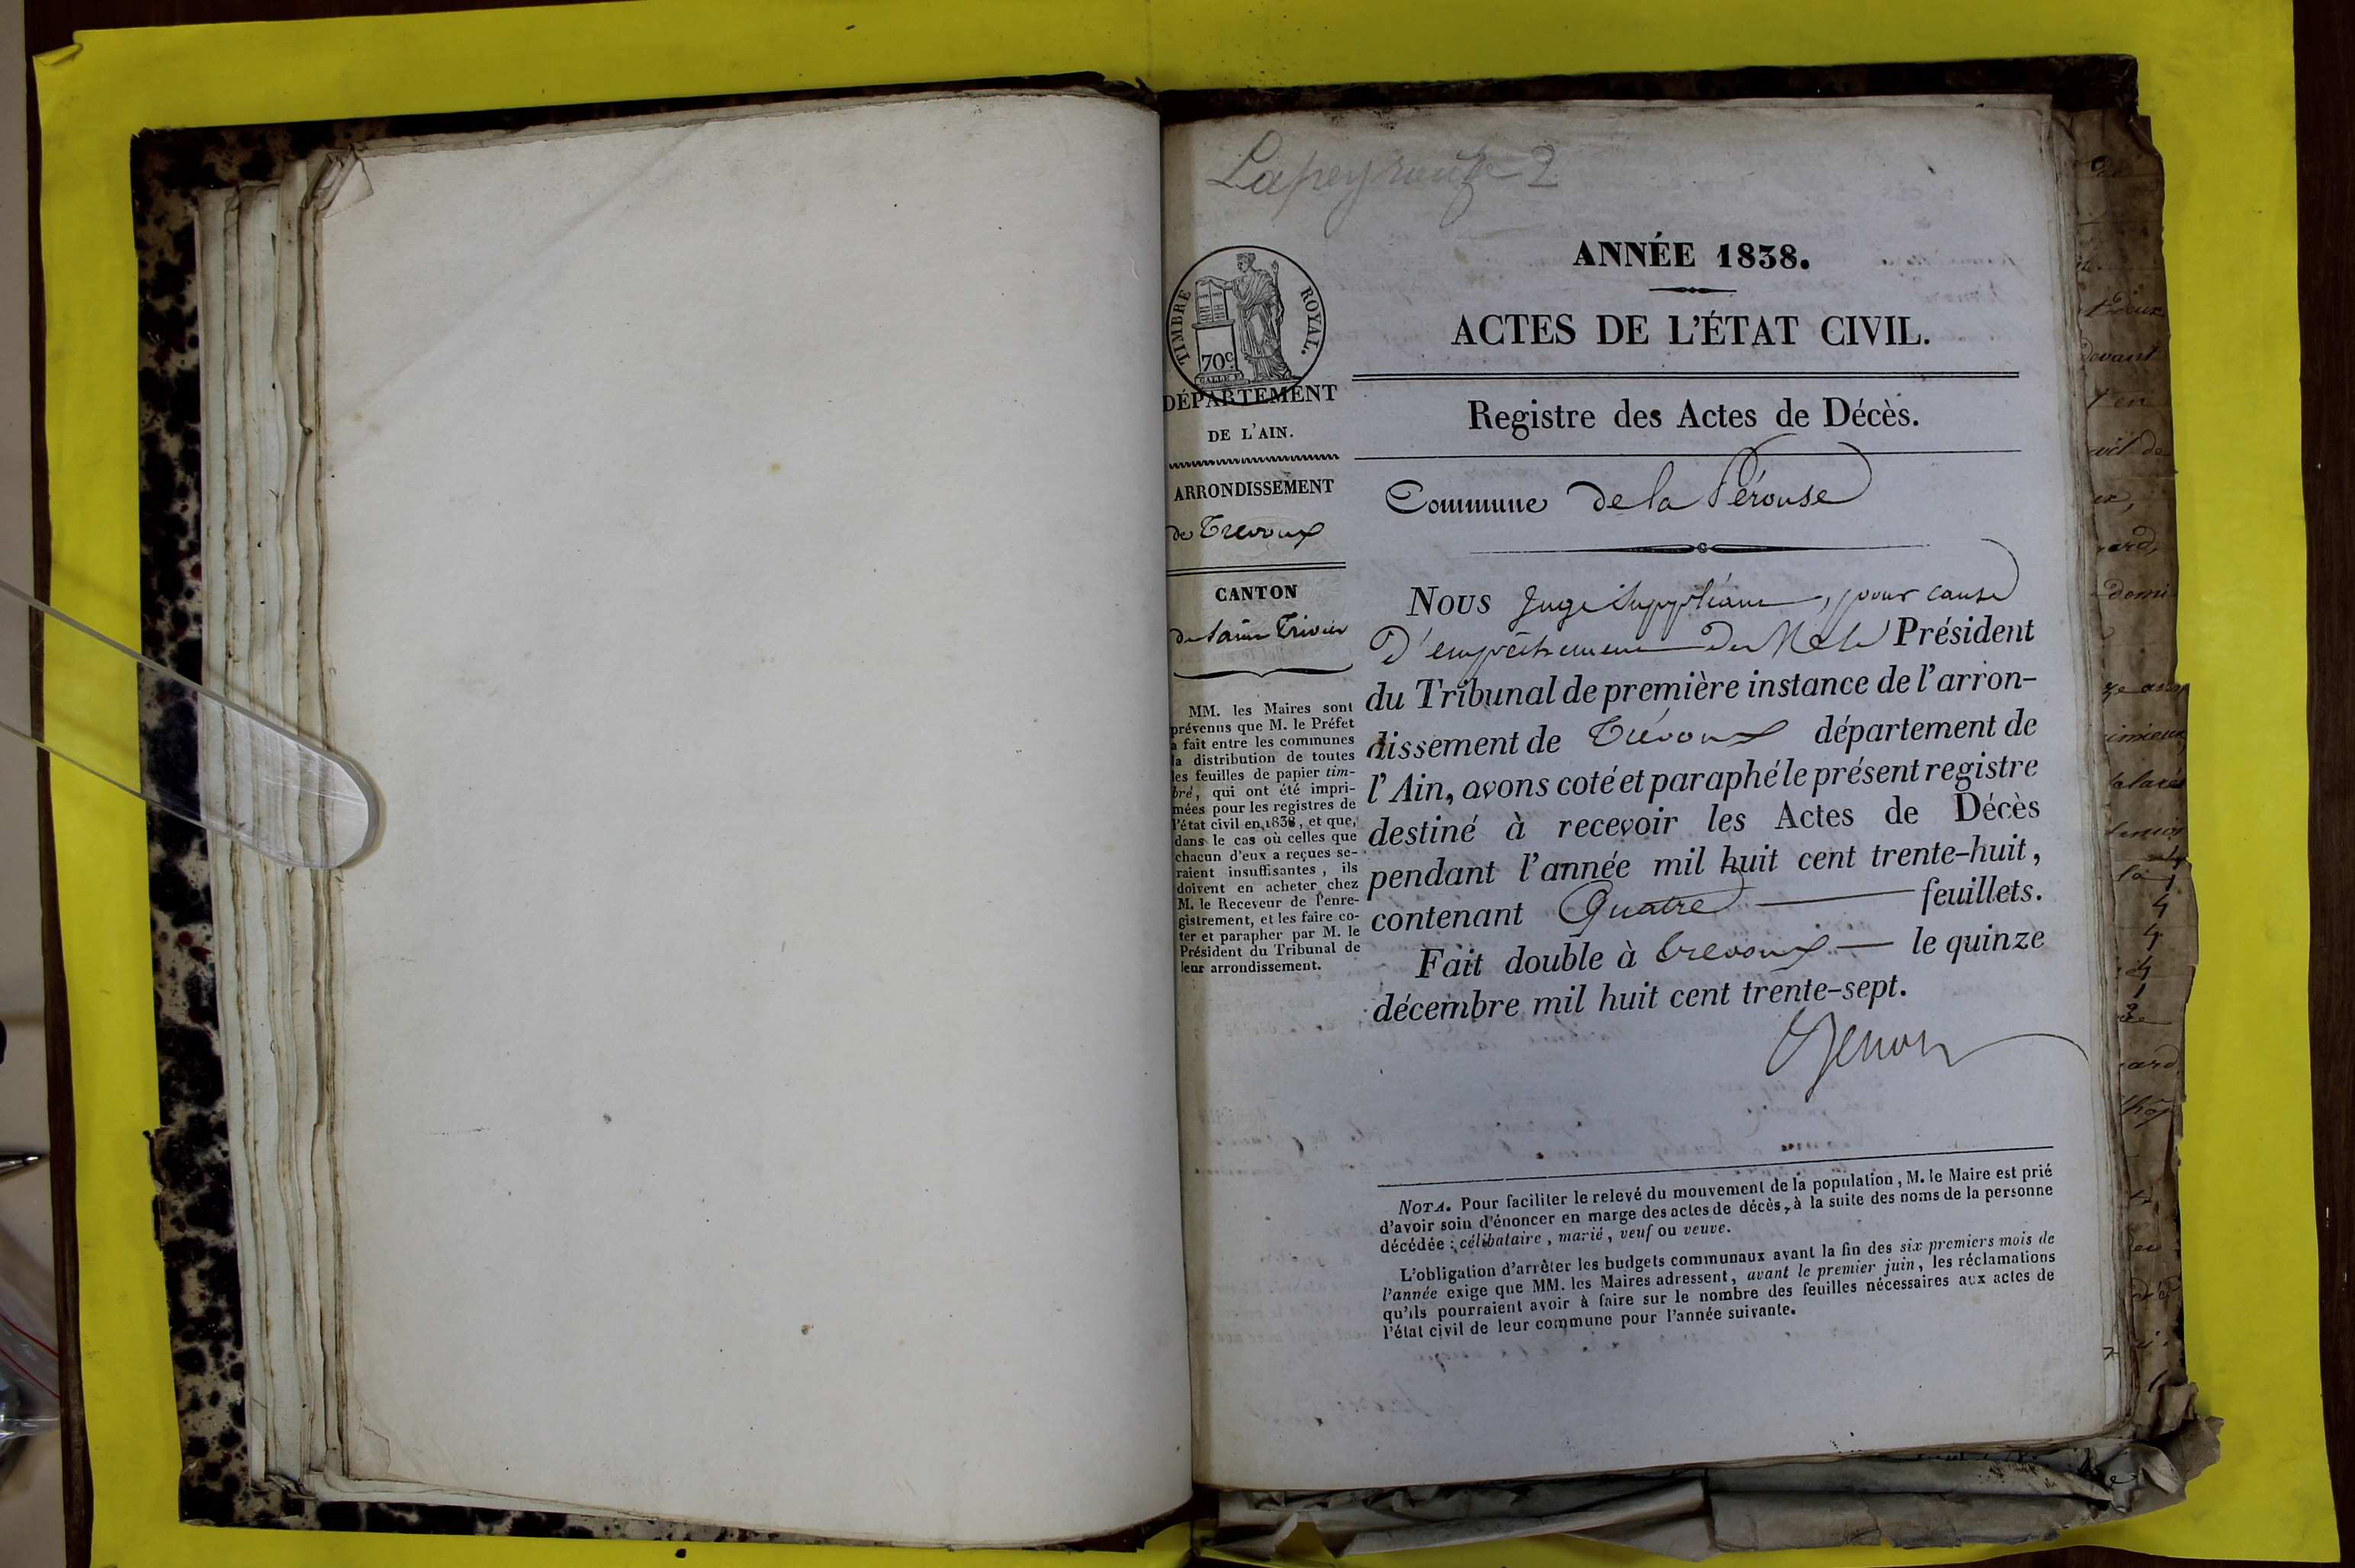 Lapeyrouse 2
ANNÉE 1838.
ACTES DE L'ÉTAT CIVIL.
Registre des Actes de Décès.
Commune de la Pérouse
TIMBRE ROYAL.
70c
DÉPARTEMENT
DE L'AIN.
ARRONDISSEMENT
de Trevoux
CANTON
de Saint Trivier
MM. les Maires sont
prévenus que M. le Préfet
a fait entre les communes
la distribution de toutes
les feuilles de papier tim-
bré, qui ont été impri-
mées pour les registres de
l'état civil en 1838, et que,
dans le cas où celles que
chacun d'eux a reçues se-
raient insuffisantes, ils
doivent en acheter chez
M. le Receveur de l'enre-
gistrement, et les faire co-
ter et parapher par M. le
Président du Tribunal de
leur arrondissement.
Nous Juge Suppléant, pour cause
D'empêchement de M. le Président
du Tribunal de première instance de l'arron-
dissement de Trévoux département de
l'Ain, avons coté et paraphé le présent registre
destiné à recevoir les Actes de Décès
pendant l'année mil huit cent trente-huit,
contenant Quatre feuillets.
Fait double à Trevoux le quinze
décembre mil huit cent trente-sept.
NOTA. Pour faciliter le relevé du mouvement de la population, M. le Maire est prié
d'avoir soin d'énoncer en marge des actes de décès, à la suite des noms de la personne
décédée : célibataire, marié, veuf ou veuve.
L'obligation d'arrêter les budgets communaux avant la fin des six premiers mois de
l'année exige que MM. les Maires adressent, avant le premier juin, les réclamations
qu'ils pourraient avoir à faire sur le nombre des feuilles nécessaires aux actes de
l'état civil de leur commune pour l'année suivante.